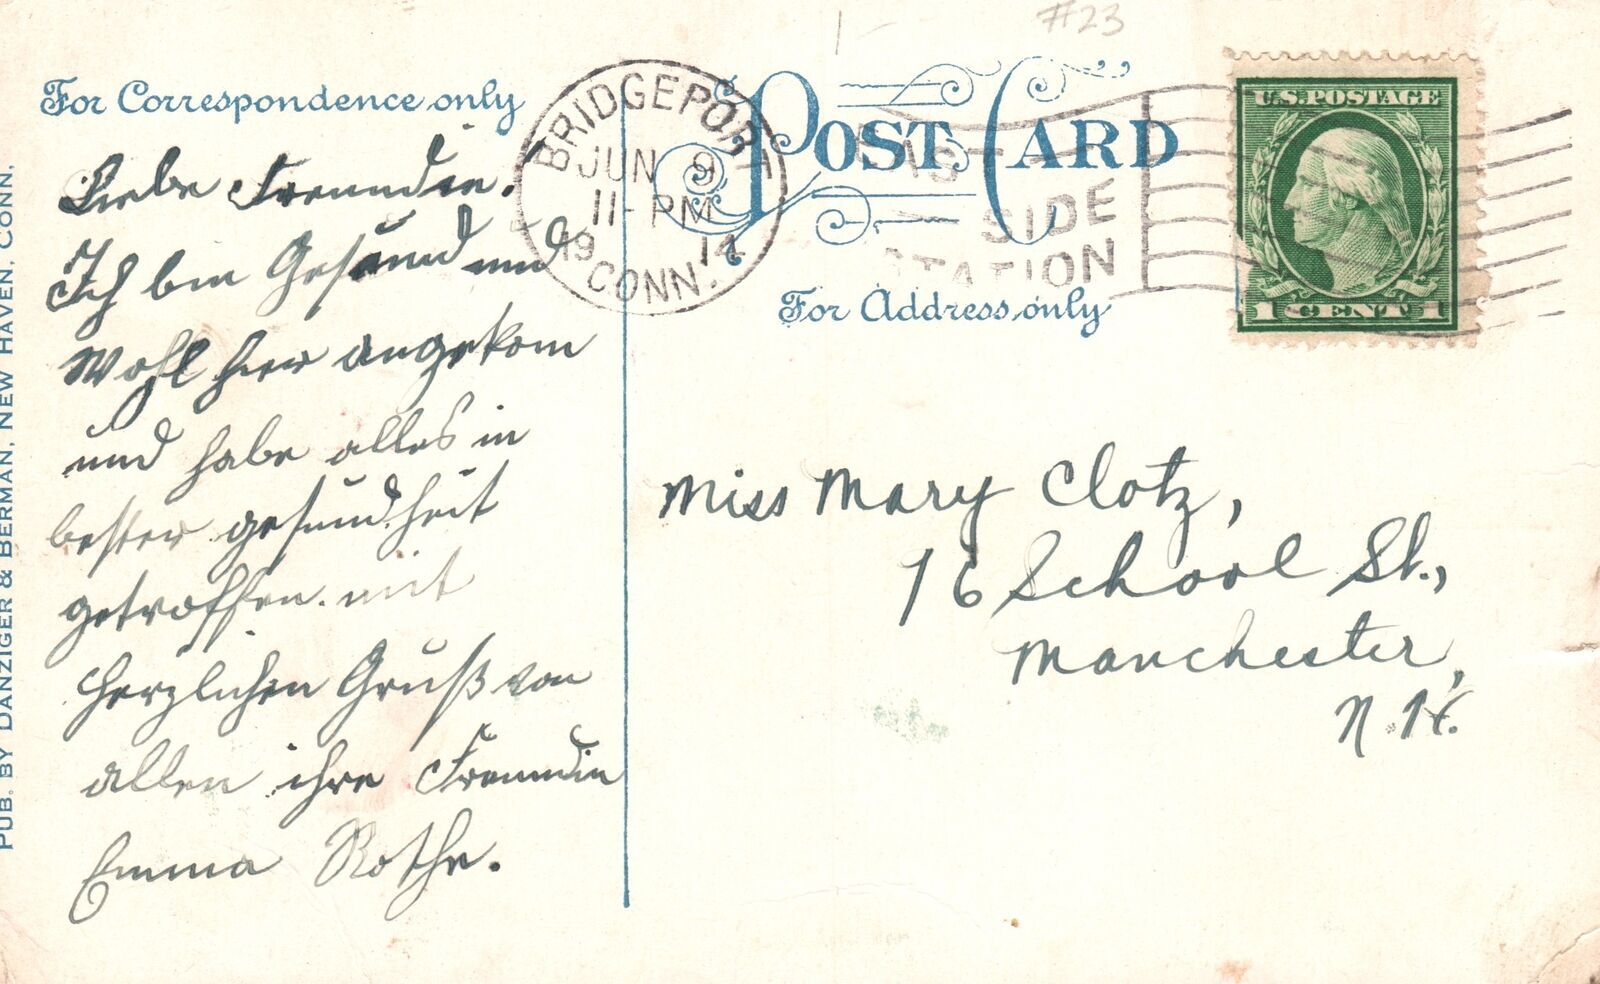 #23
For Correspondence only
POST CARD
For Address only
BRIDGEPORT
JUN 9
11-PM
1914
CONN.
SIDE
STATION
U.S. POSTAGE
1 CENT 1
Liebe Freundin.
Ich bin Gesund und
Wohl hier angekom
und habe alles in
bester gesundheit
getroffen. mit
herzlichen Gruß von
allen ihre Freundin
Emma Rothe.
Miss Mary Clotz,
76 School St.,
Manchester,
N. H.
PUB. BY DANZIGER & BERMAN, NEW HAVEN, CONN.